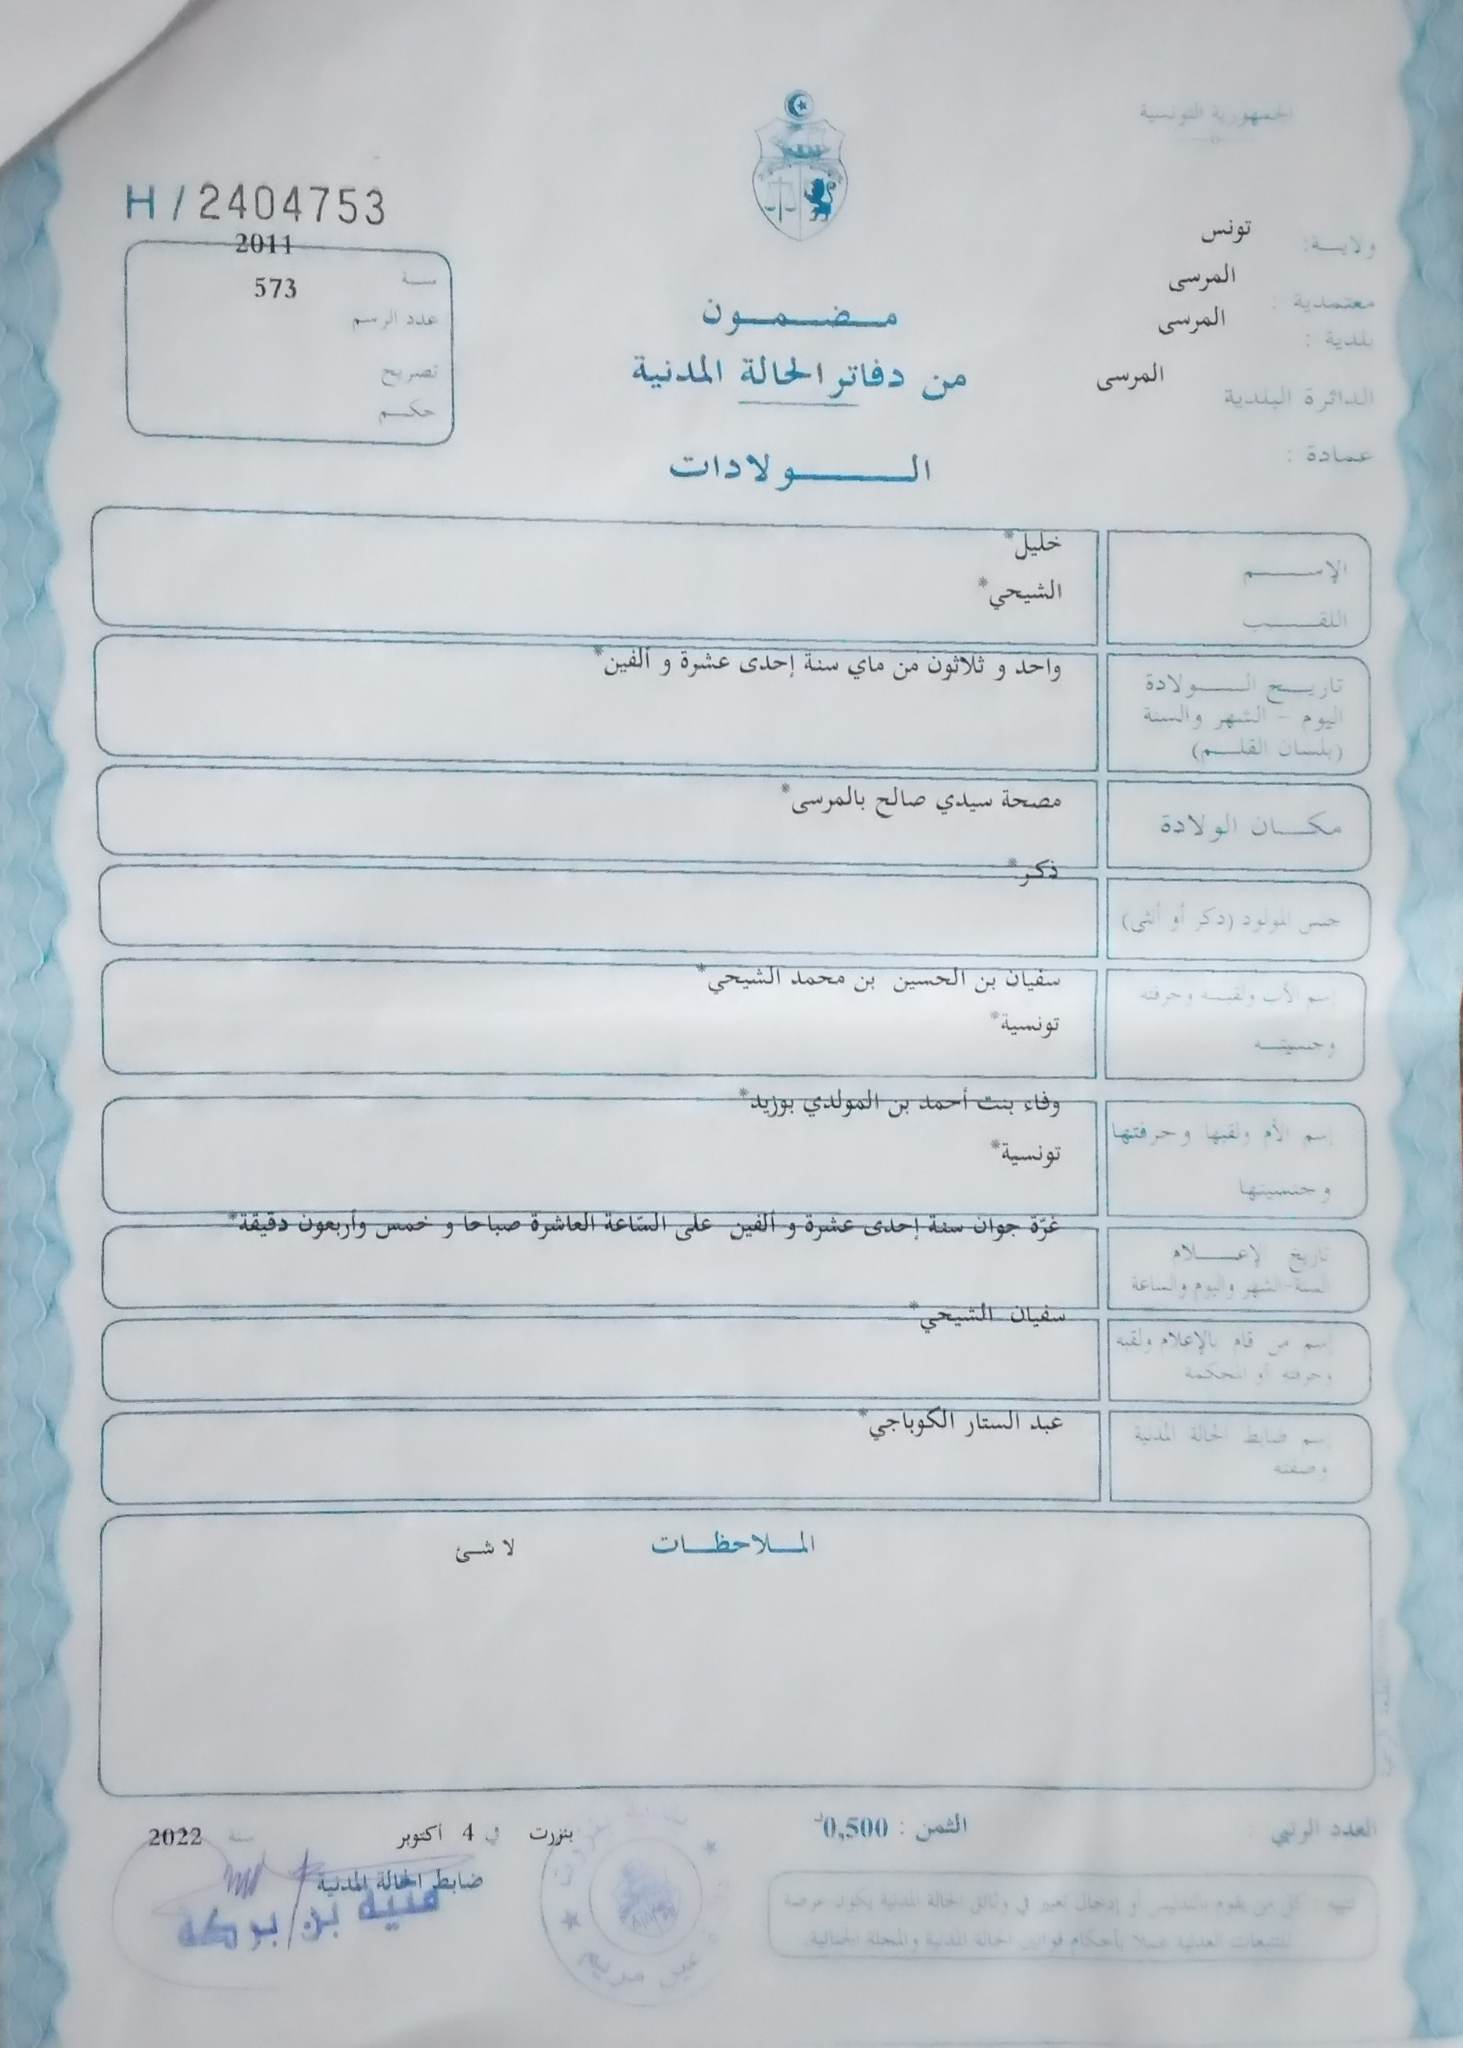 الجمهورية التونسية
H / 2404753
ولايـــة: تونس
معتمدية : المرسى
بلدية : المرسى
الدائرة البلدية المرسى
عمادة :
سنـــة 2011
عدد الرسم 573
تصريح
حكـــم
مـــضـــمـــون
من دفاتر الحالة المدنية
الـــــولادات
الإســـــم خليل*
اللقـــــب الشيحي*
تاريـــخ الـــــولادة واحد و ثلاثون من ماي سنة إحدى عشرة و ألفين*
اليوم - الشهر والسنة
(بلسان القلـــم)
مكـــان الولادة مصحة سيدي صالح بالمرسى*
جنس المولود (ذكر أو أنثى) ذكر*
إسم الأب ولقبـــه وحرفته سفيان بن الحسين بن محمد الشيحي*
وجنسيتـــه تونسية*
إسم الأم ولقبها وحرفتها وفاء بنت أحمد بن المولدي بوزيد*
وجنسيتها تونسية*
تاريخ لإعـــــلام غرّة جوان سنة إحدى عشرة و ألفين على السّاعة العاشرة صباحا و خمس وأربعون دقيقة*
السنة-الشهر واليوم والساعة
إسم من قام بالإعلام ولقبه سفيان الشيحي*
وحرفته أو المحكمة
إسم ضابط الحالة المدنية عبد الستار الكوباجي*
وصفته
المـــلاحظـــات لا شئ
العدد الرتبي :
الثمن : 0,500د
بنزرت في 4 أكتوبر سنة 2022
ضابط الحالة المدنية
منية بن بركة
عين مريم
تنبيه : كل من يقوم بالتدليس أو إدخال تغيير في وثائق الحالة المدنية يكون عرضة
للتتبعات العدلية عملا بأحكام قوانين الحالة المدنية والمجلة الجنائية.